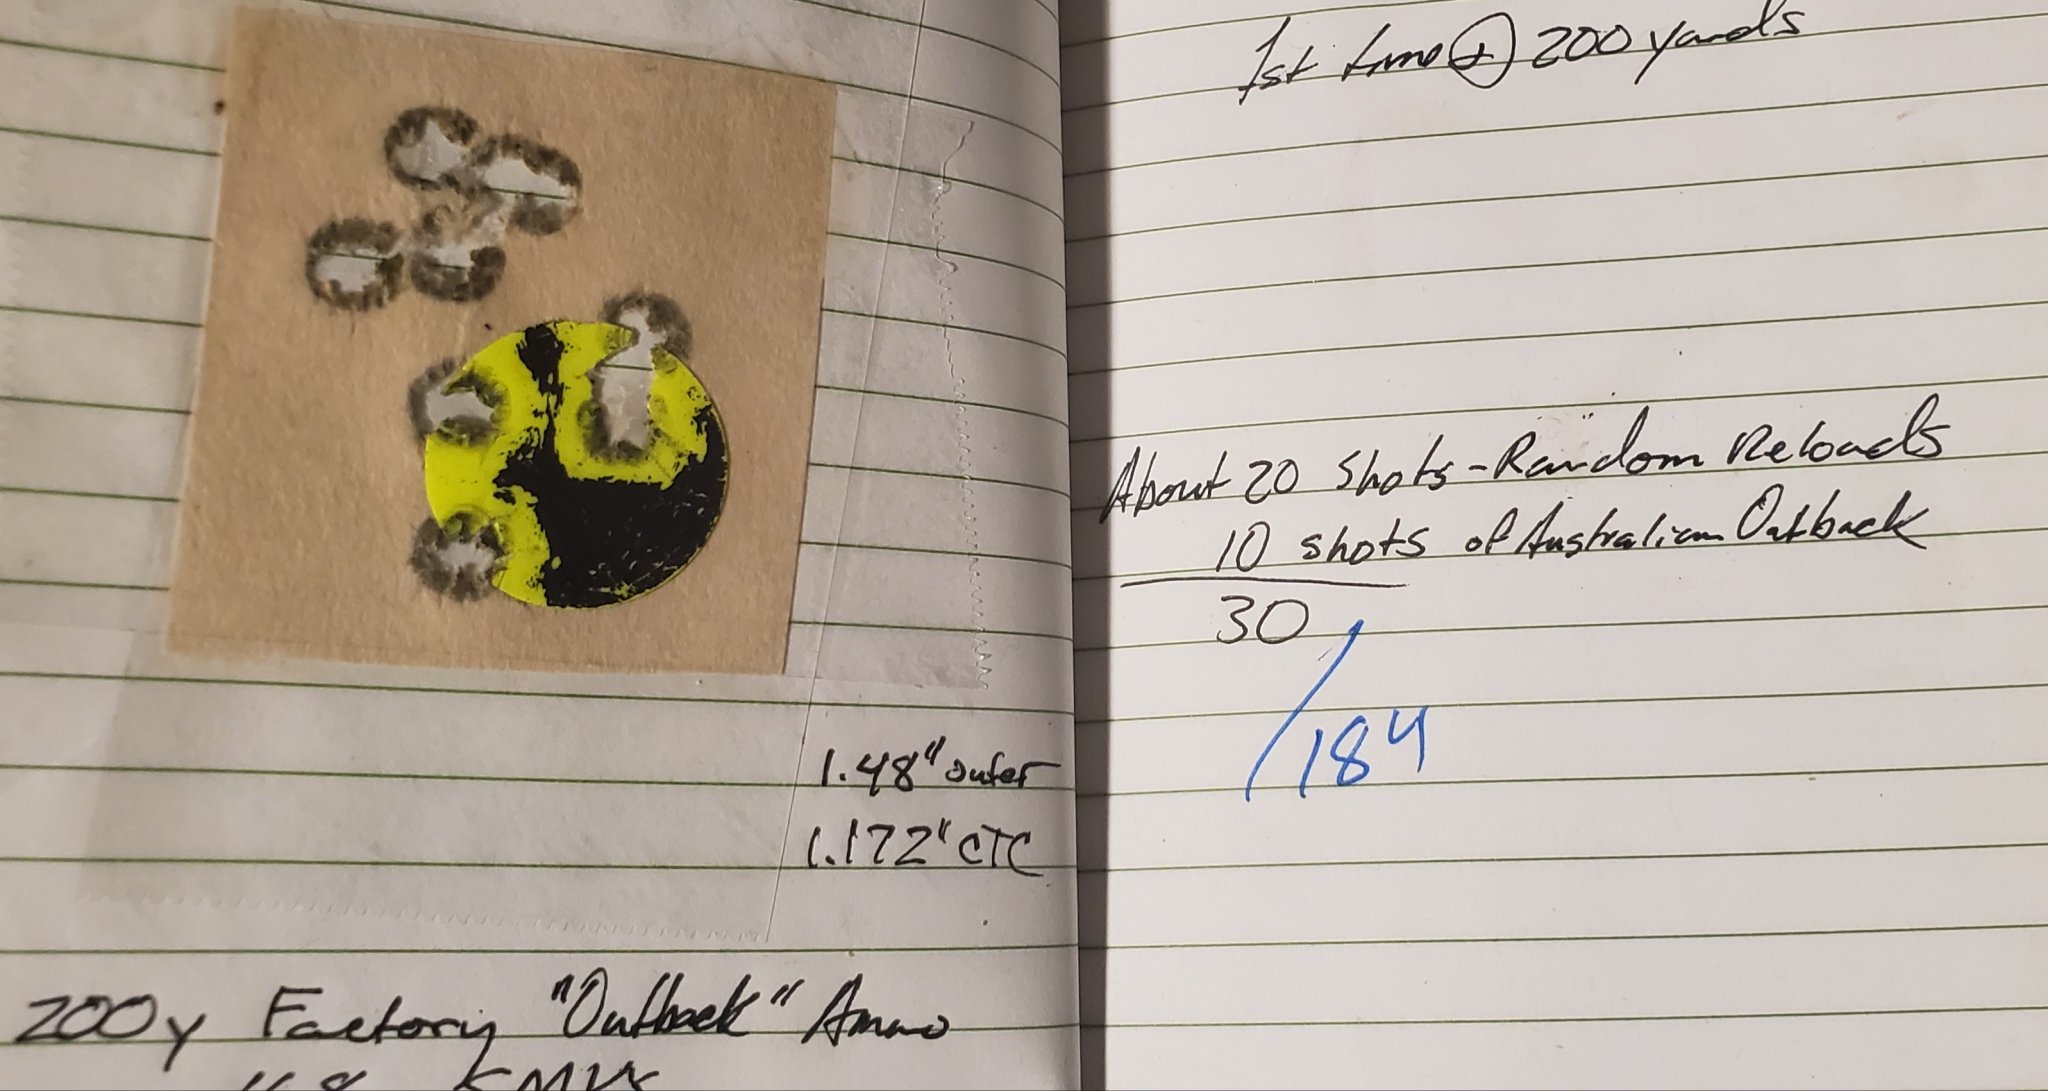 1.48" outer
1.172" CTC
200y Factory "Outback" Ammo
1st time @ 200 yards
About 20 shots - Random Reloads
10 shots of Australian Outback
30
/184